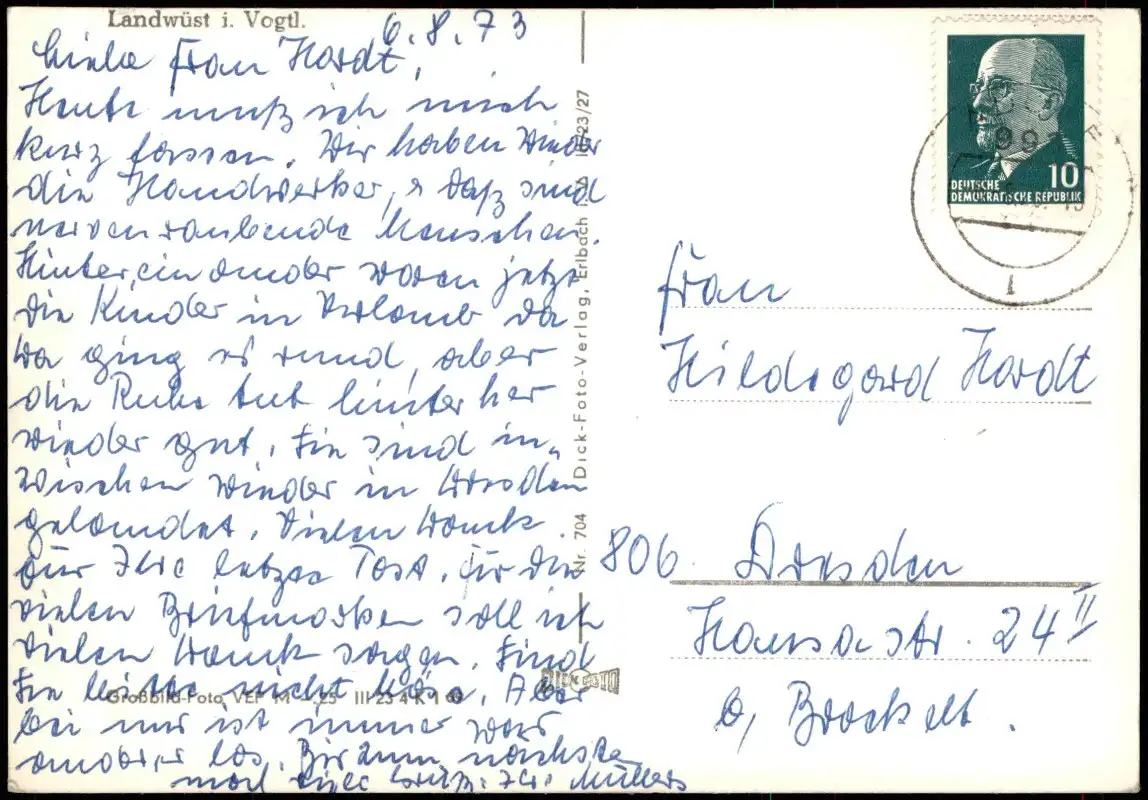 Landwüst i. Vogtl.
6.8.73
Liebe Frau Hardt,
Heute muß ich mich
kurz fassen. Wir haben wieder
die Handwerker, daß sind
nervenraubende Menschen.
Hintereinander waren jetzt
die Kinder in Urlaub da
da ging es rund, aber
die Ruhe tut hinterher
wieder gut. Sie sind in„
zwischen wieder in Dresden
gelandet. Vielen Dank
für Ihre letzte Post. Für die
vielen Briefmarken soll ich
vielen Dank sagen. Sind
Sie bitte nicht böse. Aber
bei uns ist immer was
anderes los. Bis zum nächsten
mal viele Grüße Ihre Müllers
Großbild-Foto VEP M -.25 III 23 4 K 1
Nr. 704 Dick-Foto-Verlag, Erlbach i. V. III/23/27
DICK FOTO
DEUTSCHE
DEMOKRATISCHE REPUBLIK
10
Frau
Hildegard Hardt
806 Dresden
Hansastr. 24 II
b, Brockelt.